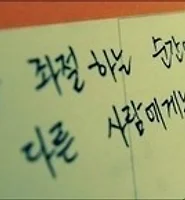 좌절 하는 순간
다른 사람에게